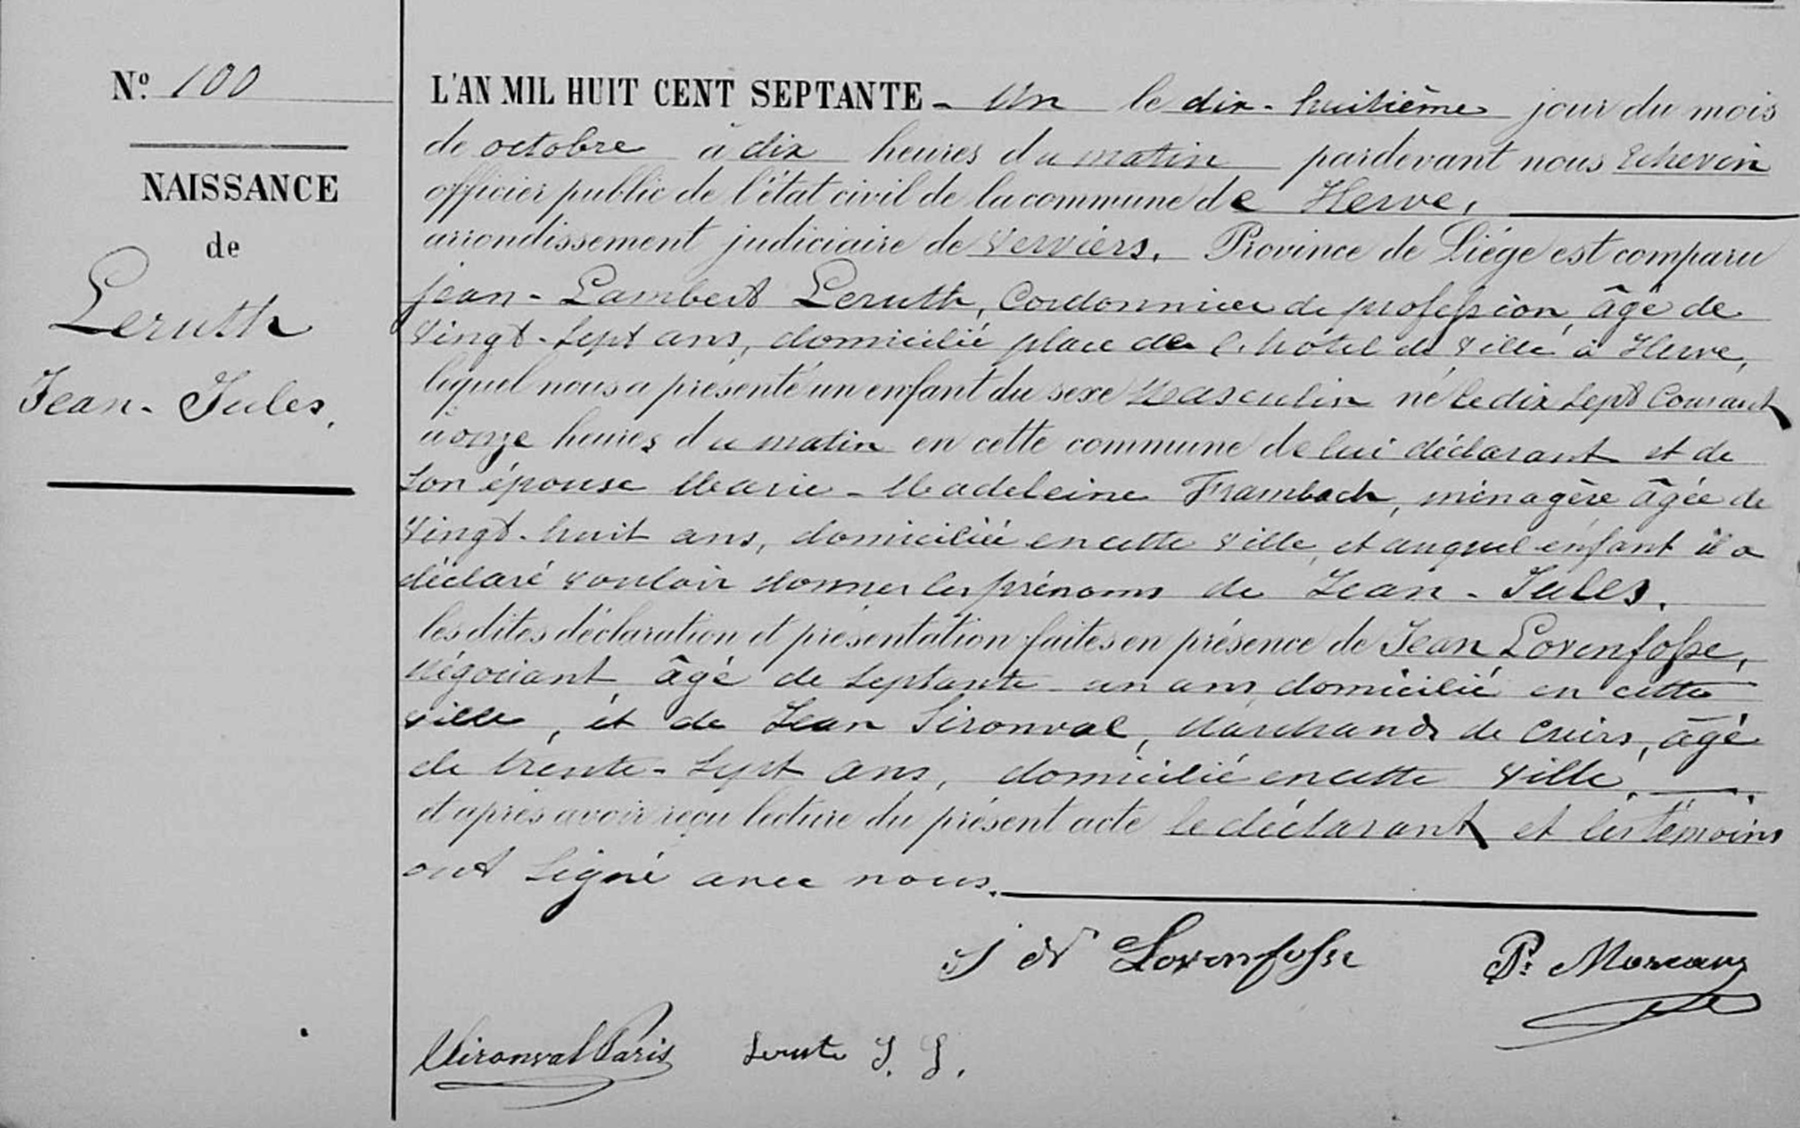 Nº 100
NAISSANCE
de
Leruth
Jean-Jules.
L'AN MIL HUIT CENT SEPTANTE - Un le dix-huitième jour du mois
de octobre à dix heures du matin pardevant nous Echevin
officier public de l'état civil de la commune de Herve,
arrondissement judiciaire de Verviers. Province de Liége est comparu
Jean-Lambert Leruth, Cordonnier de profession, âgé de
vingt-sept ans, domicilié place de l'hôtel de ville à Herve,
lequel nous a présenté un enfant du sexe Masculin né le dix sept Courant
à onze heures du matin en cette commune de lui déclarant et de
son épouse Marie-Madeleine Frambach, ménagère âgée de
vingt-huit ans, domiciliée en cette ville, et auquel enfant il a
déclaré vouloir donner les prénoms de Jean-Jules.
les dites déclaration et présentation faites en présence de Jean Lovenfosse,
Négociant, âgé de septante-un ans, domicilié en cette
ville, et de Jean Sironval, Marchand de Cuirs, âgé
de trente-sept ans, domicilié en cette ville.
et après avoir reçu lecture du présent acte le déclarant et les témoins
ont signé avec nous.
J N Lovenfosse
Sironval Paris Leruth J. L.